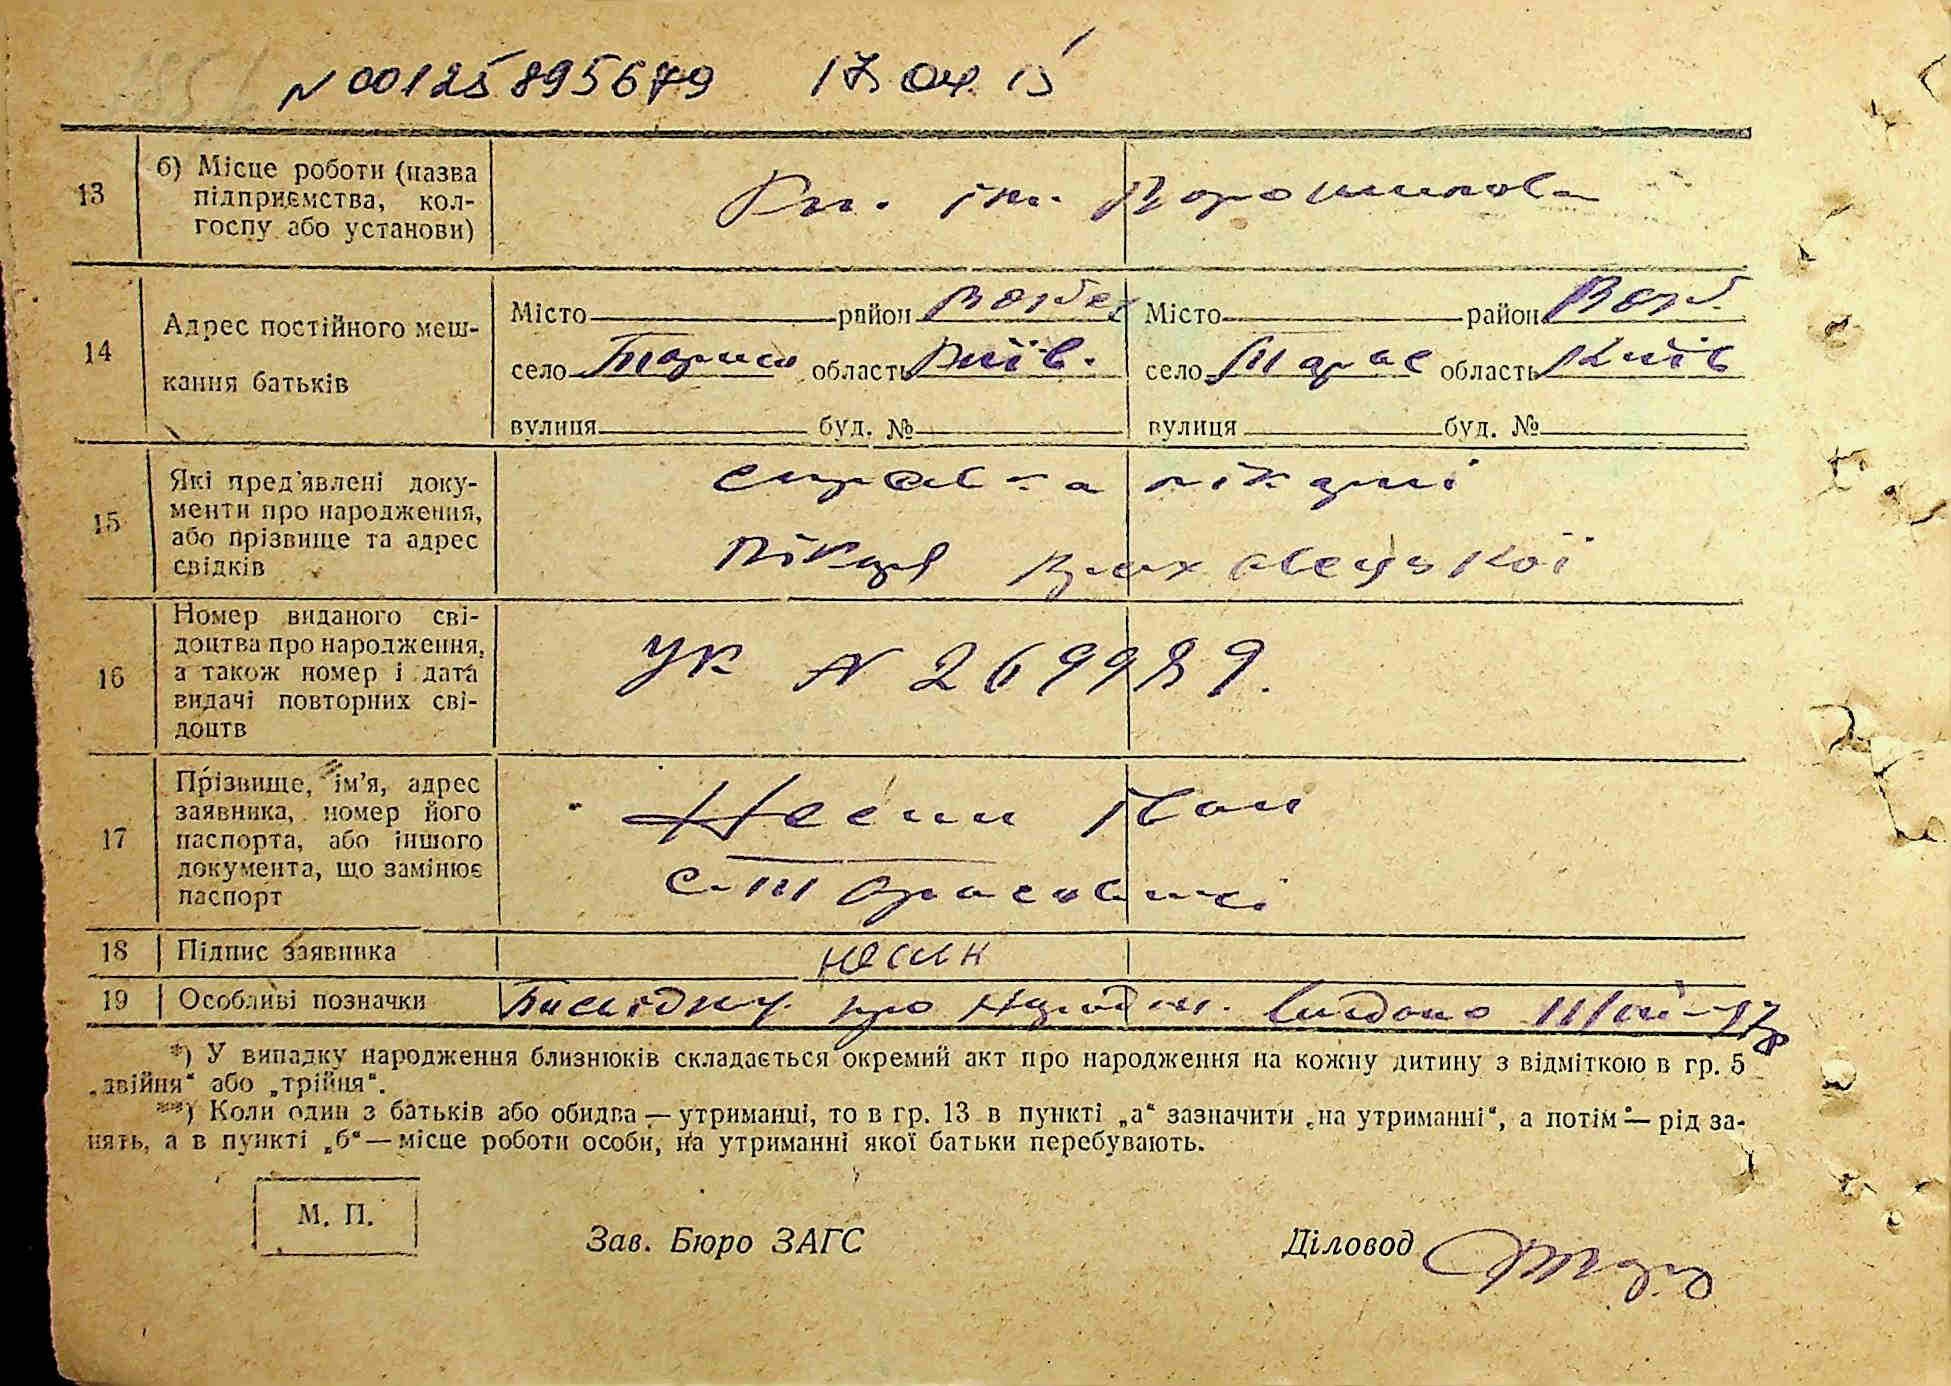 N 00125895679 17 04 15
13 б) Місце роботи (назва підприємства, колгоспу або установи) Кл. ім. Ворошилова
14 Адрес постійного мешкання батьків
Місто район село область Київ. вулиця буд. №
Місто район село Тарас область Київ вулиця буд. №
15 Які пред'явлені документи про народження, або прізвище та адрес свідків
справка лікарні
16 Номер виданого свідоцтва про народження, а також номер і дата видачі повторних свідоцтв
УК N 269989.
17 Прізвище, ім'я, адрес заявника, номер його паспорта, або іншого документа, що замінює паспорт
Несин Іван
с. Тарасовичі
18 Підпис заявника Несин
19 Особливі позначки про народж. видано
*) У випадку народження близнюків складається окремий акт про народження на кожну дитину з відміткою в гр. 5
„двійня“ або „трійня“.
**) Коли один з батьків або обидва — утриманці, то в гр. 13 в пункті „а“ зазначити „на утриманні“, а потім — рід за-
нять, а в пункті „б“ — місце роботи особи, на утриманні якої батьки перебувають.
М. П.
Зав. Бюро ЗАГС Діловод